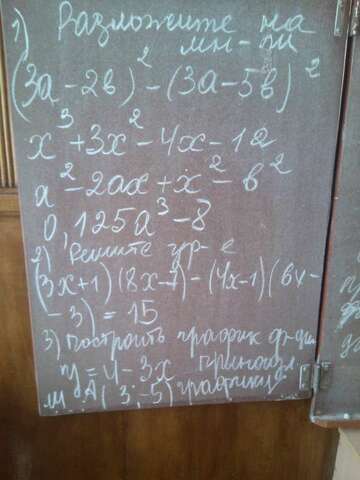 1) Разложите на
мн-ли
(3а-2в)² - (3а-5в)²
x³+3x²-4x-12
а²-2аx+x²-в²
0,125а³-8
2) Решите ур-е
(3x+1)(8x-7)-(4x-1)(6x-
-3)=15
3) Построить график ф-ции
y=4-3x принадл
ли А(3;-5) графику